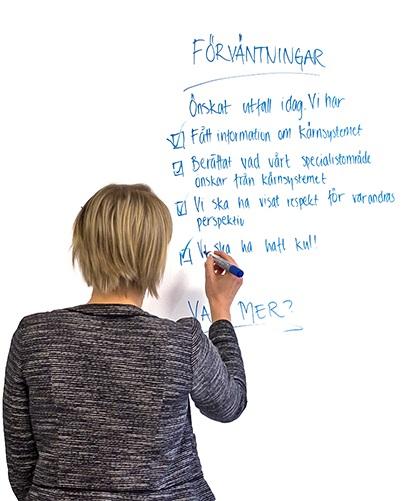 FÖRVÄNTNINGAR
Önskat utfall idag. Vi har
Fått information om kärnsystemet
Berättat vad vårt specialistområde
önskar från kärnsystemet
Vi ska ha visat respekt för varandras
perspektiv
Vi ska ha haft kul!
MER?